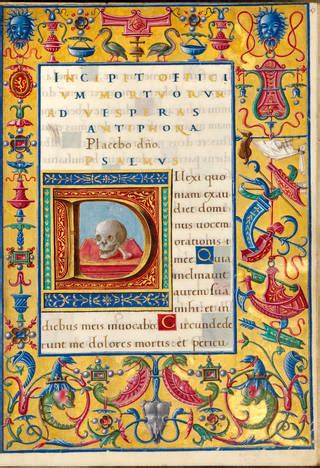 INCIPIT OFFICI
UM MORTVORUM
AD VESPERAS
ANTIPHONA
Placebo dño.
PSALMVS
DIlexi quo
niam exau
diet domi
nus uocem
orationis
mee. Quia
inclinauit
aurem suā
mihi: et in
diebus meis inuocabo. Circundede
runt me dolores mortis: et pericu